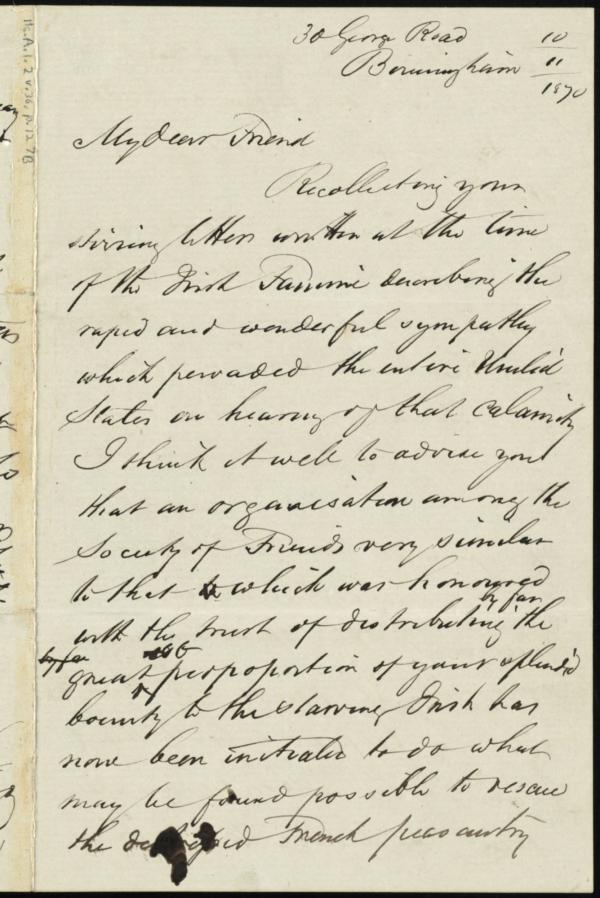 30 George Road 10
Birmingham 11
1870
My dear Friend
Recollecting your
stirring letters written at the time
of the Irish Famine describing the
rapid and wonderful sympathy
which pervaded the entire United
States on hearing of that calamity
I think it well to advise you
that an organisation among the
Society of Friends very similar
to that to which was honoured
with the trust of distributing by far the
great proportion of your splendid
bounty to the starving Irish has
now been initiated to do what
may be found possible to rescue
the French peasantry
Ms.A.1.2 v.36, p.127B